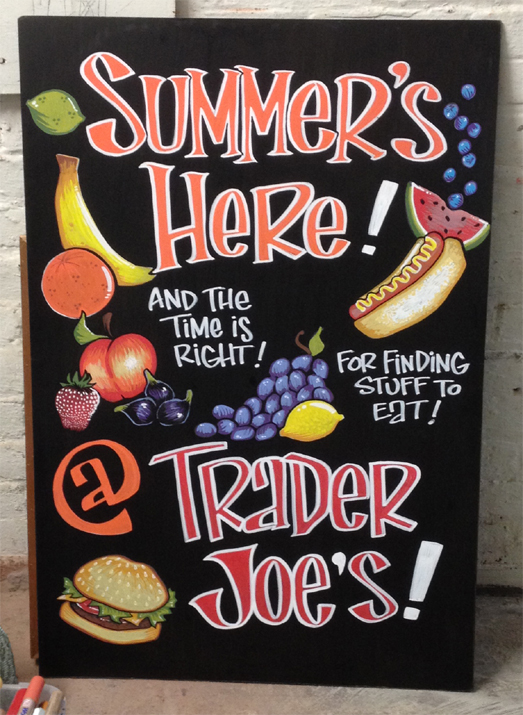 SUMMER'S
HERE!
AND THE
TIME IS
RIGHT!
FOR FINDING
STUFF TO
EAT!
@ TRADER
JOE'S!